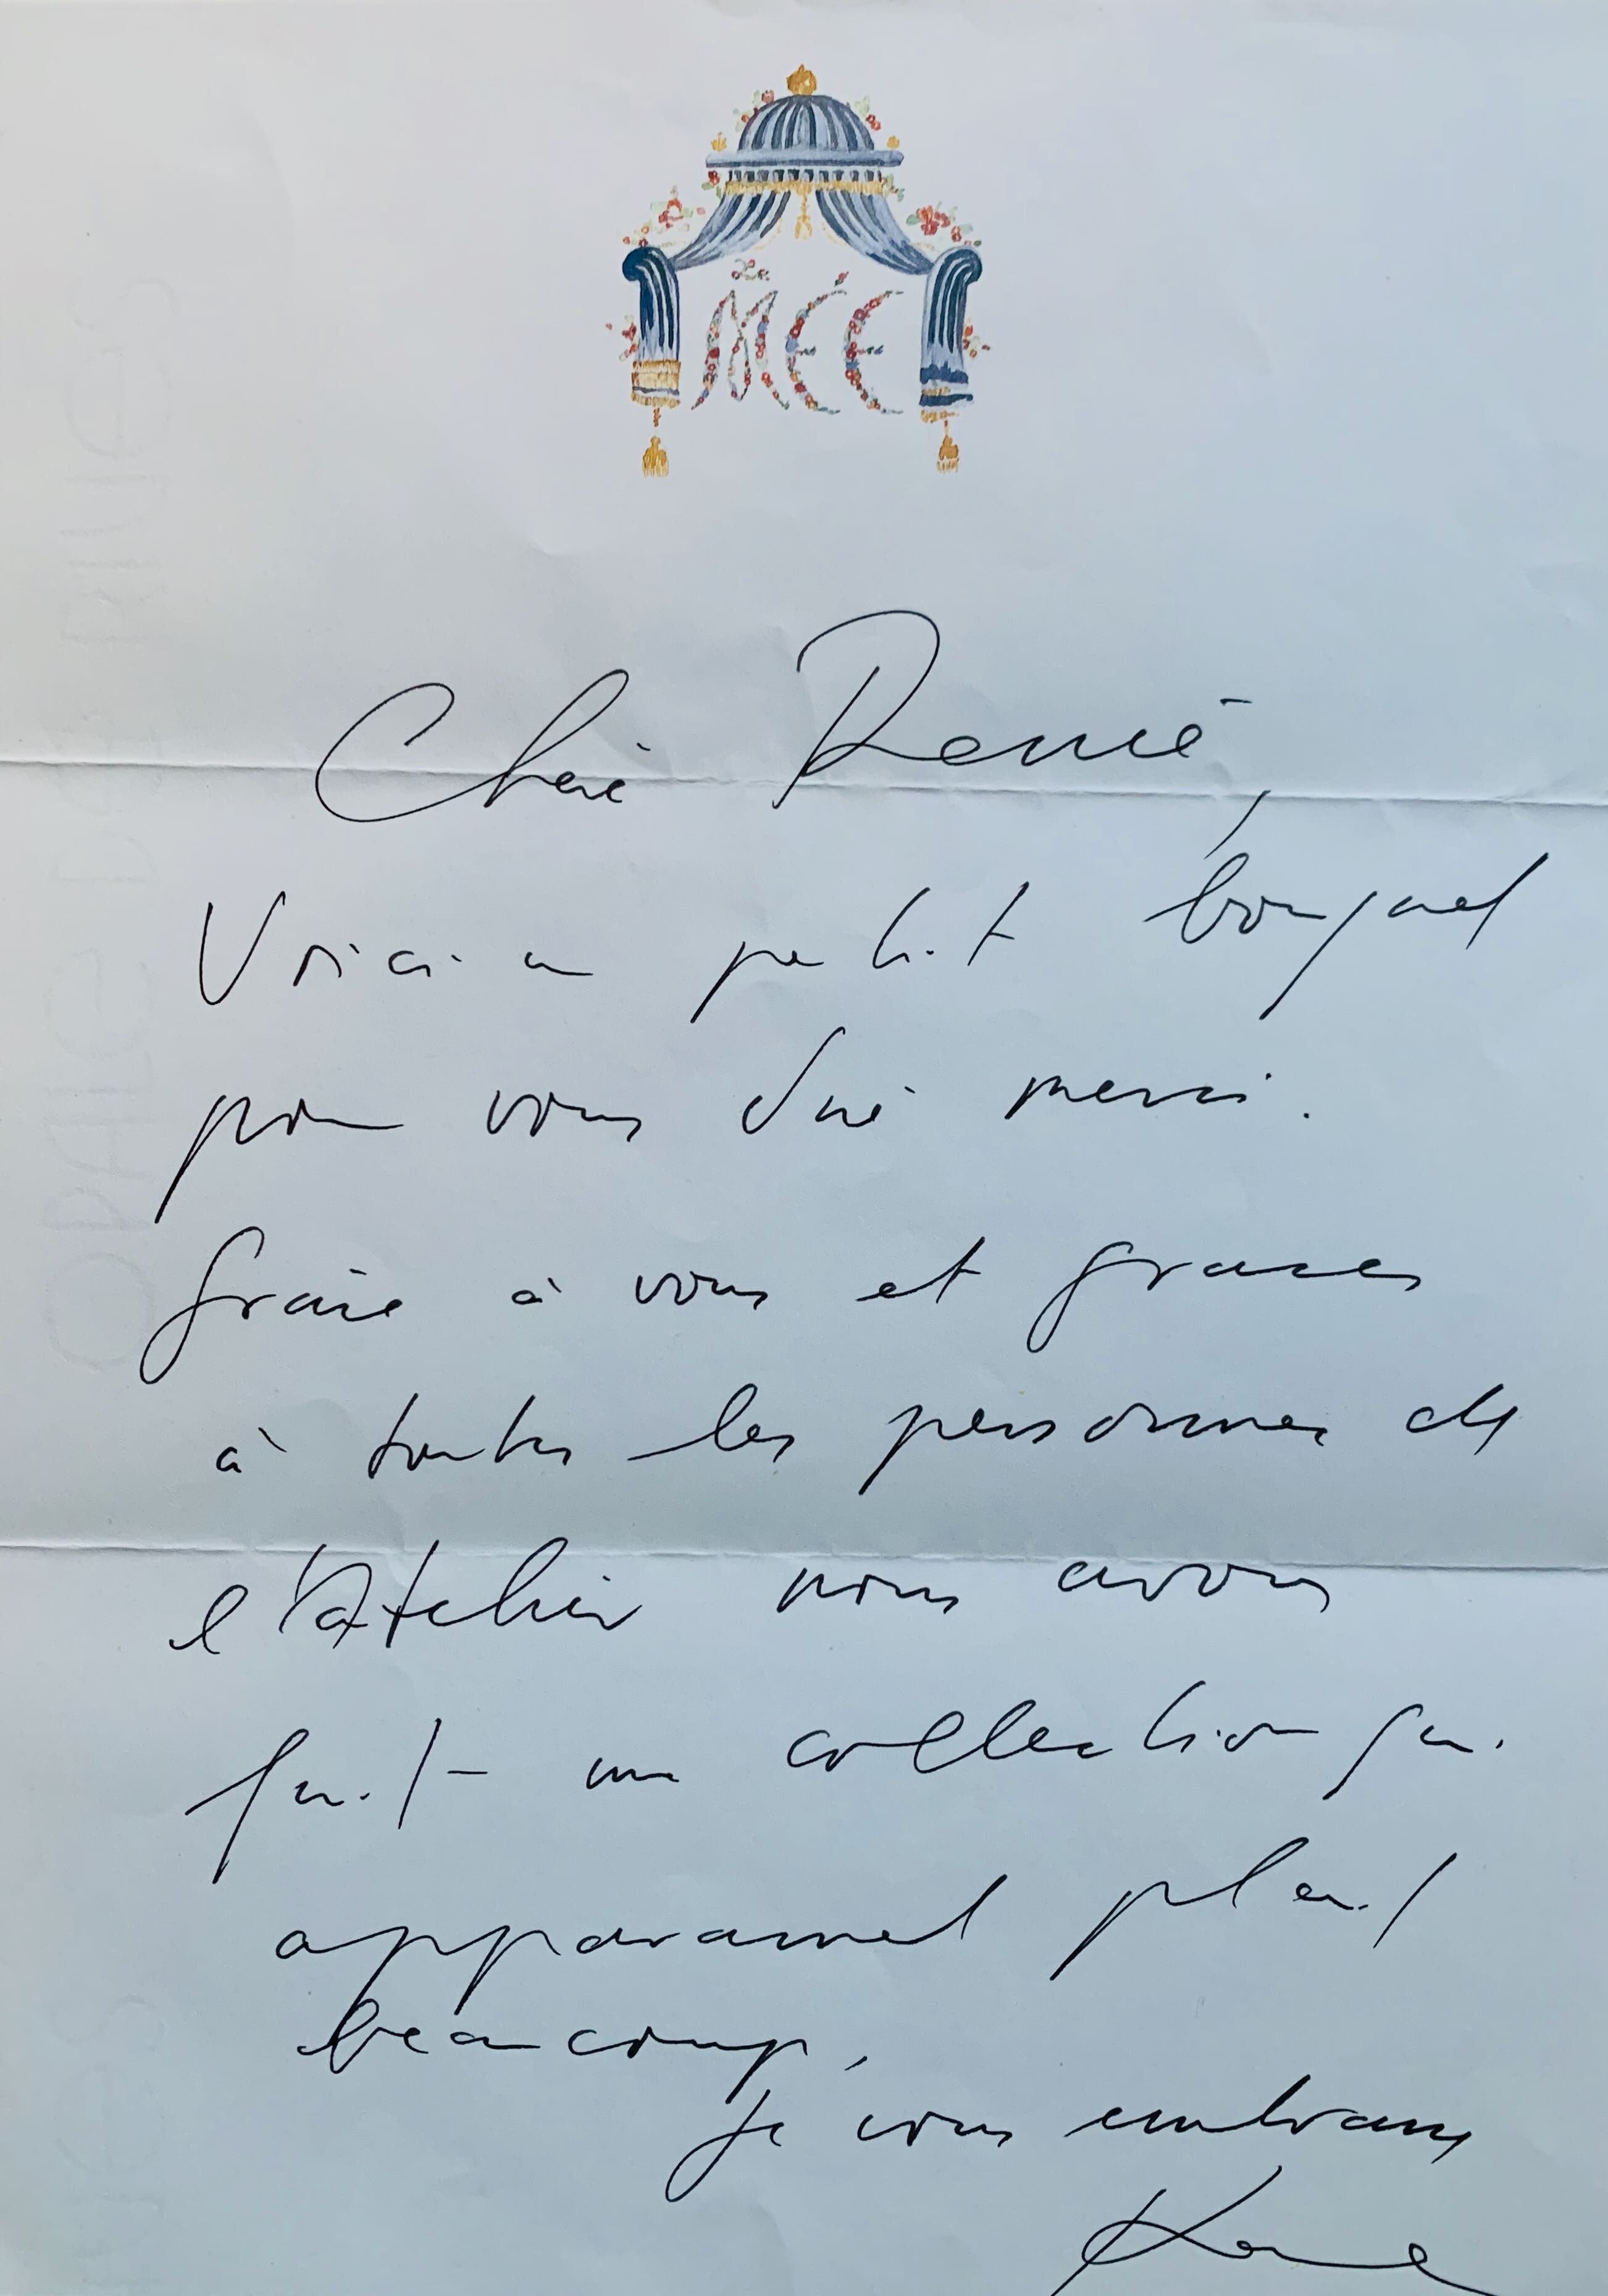 Le
MÉE
Chère Renée,
Voici un petit bouquet
pour vous dire merci.
Grâce à vous et graces
à toutes les personnes de
l'Atelier nous avons
fait une collection qui
apparament plait
beaucoup,
Je vous embrasse